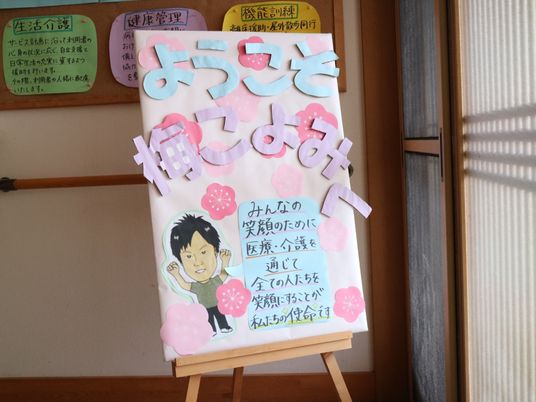 生活介護
サービス計画に沿って利用者の
心身の状況に応じ、自立支援と
日常生活の充実に資するよう
援助を行います。
その際、利用者の人格に配慮
いたします。
健康管理
機能訓練
ようこそ
梅こよみへ
みんなの
笑顔のために
医療・介護を
通じて
全ての人たちを
笑顔にすることが
私たちの使命です